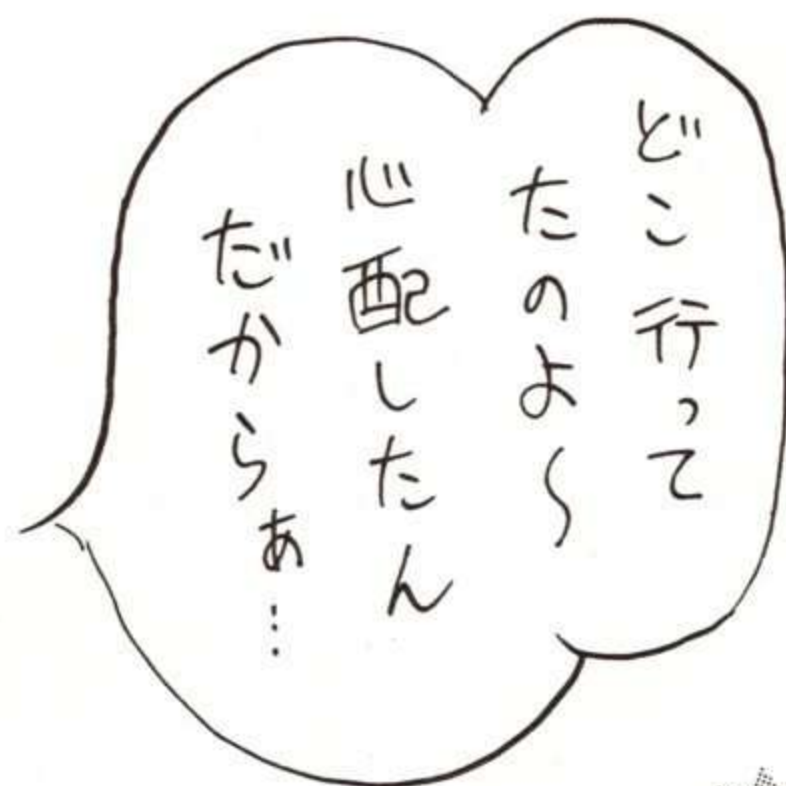 どこ行って
たのよ〜
心配したん
だからぁ…